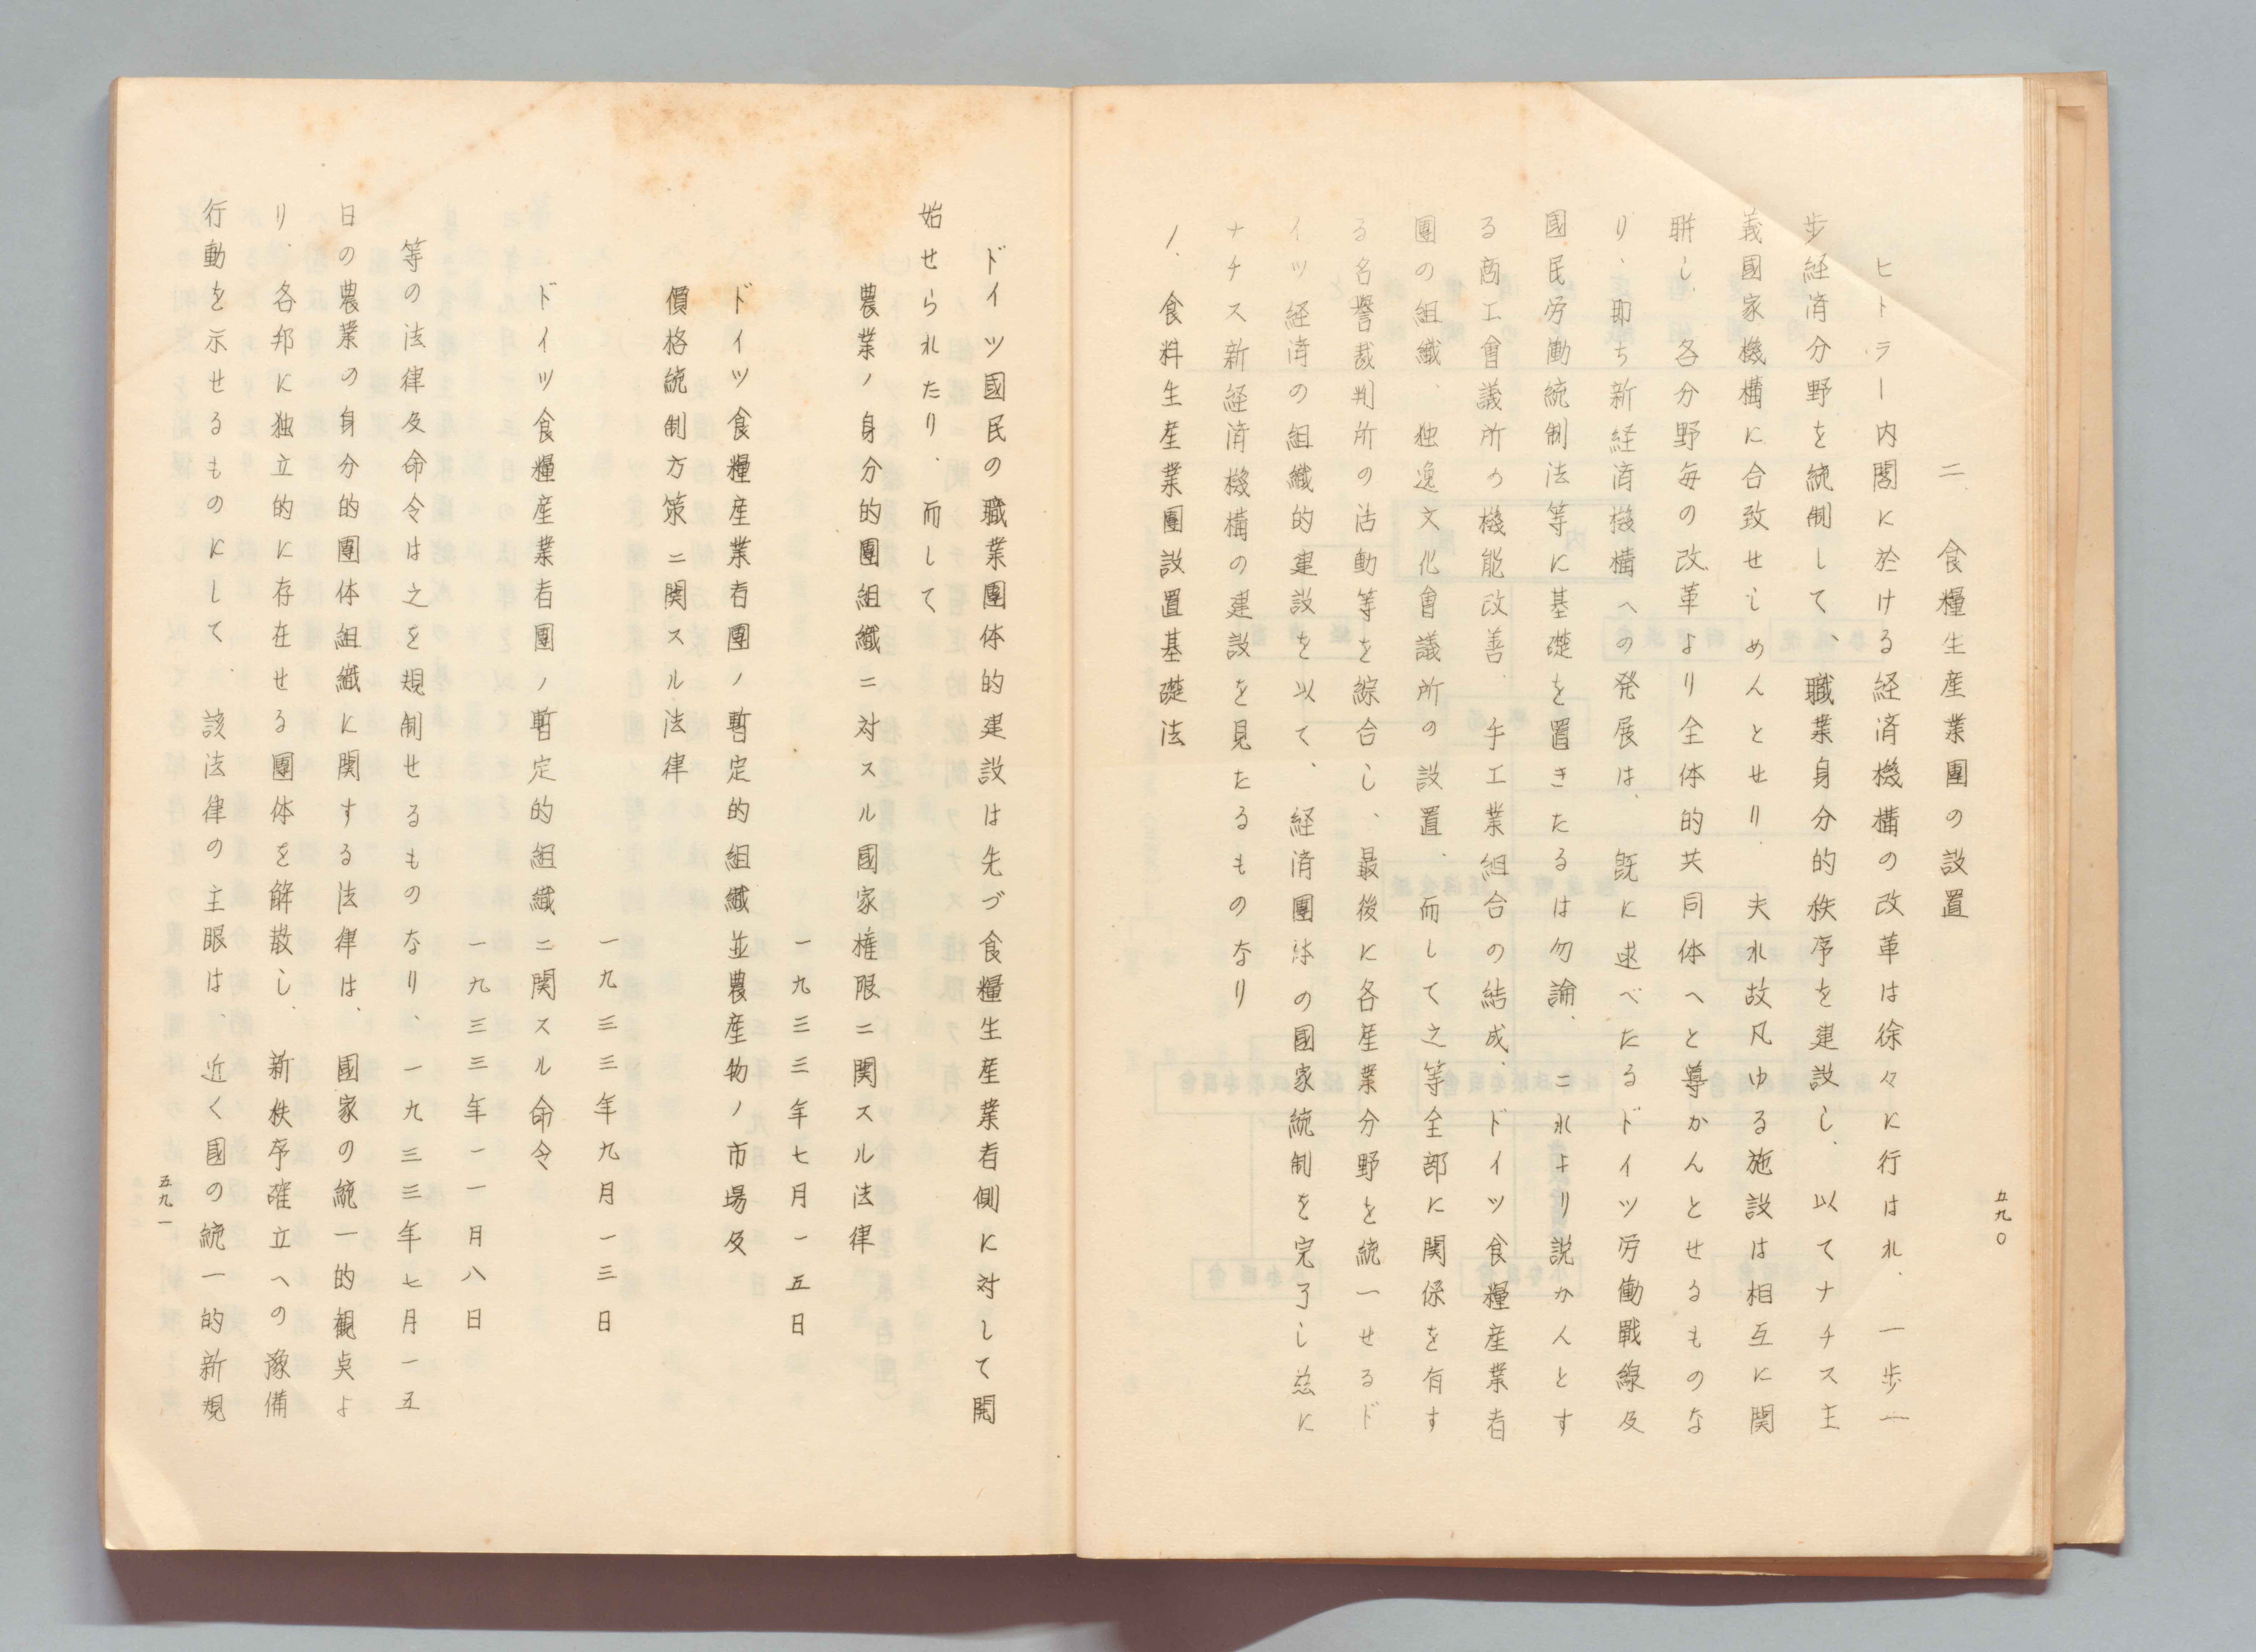 五九〇
二、食糧生産業團の設置
ヒトラー内閣に於ける経済機構の改革は徐々に行はれ、一歩一
歩経済分野を統制して、職業身分的秩序を建設し、以てナチス主
義國家機構に合致せしめんとせり、夫れ故凡ゆる施設は相互に関
聨し、各分野毎の改革より全体的共同体へと導かんとせるものな
り、即ち新経済機構への発展は、既に述べたるドイツ労働戰線及
國民労働統制法等に基礎を置きたるは勿論、これより説かんとす
る商工會議所の機能改善、手工業組合の結成、ドイツ食糧産業者
團の組織、独逸文化會議所の設置、而して之等全部に関係を有す
る名譽裁判所の活動等を綜合し、最後に各産業分野を統一せるド
イツ経済の組織的建設を以て、経済團体の國家統制を完了し玆に
ナチス新経済機構の建設を見たるものなり
1、食料生産業團設置基礎法
ドイツ國民の職業團体的建設は先づ食糧生産業者側に対して開
始せられたり、而して
農業ノ身分的團組織ニ対スル國家権限ニ関スル法律
一九三三年七月一五日
ドイツ食糧産業者團ノ暫定的組織並農産物ノ市場及
價格統制方策ニ関スル法律
一九三三年九月一三日
ドイツ食糧産業者團ノ暫定的組織ニ関スル命令
一九三三年一一月八日
等の法律及命令は之を規制せるものなり、一九三三年七月一五
日の農業の身分的團体組織に関する法律は、國家の統一的観点よ
り、各邦に独立的に存在せる團体を解散し、新秩序確立への豫備
行動を示せるものにして、該法律の主眼は、近く國の統一的新規
五九一